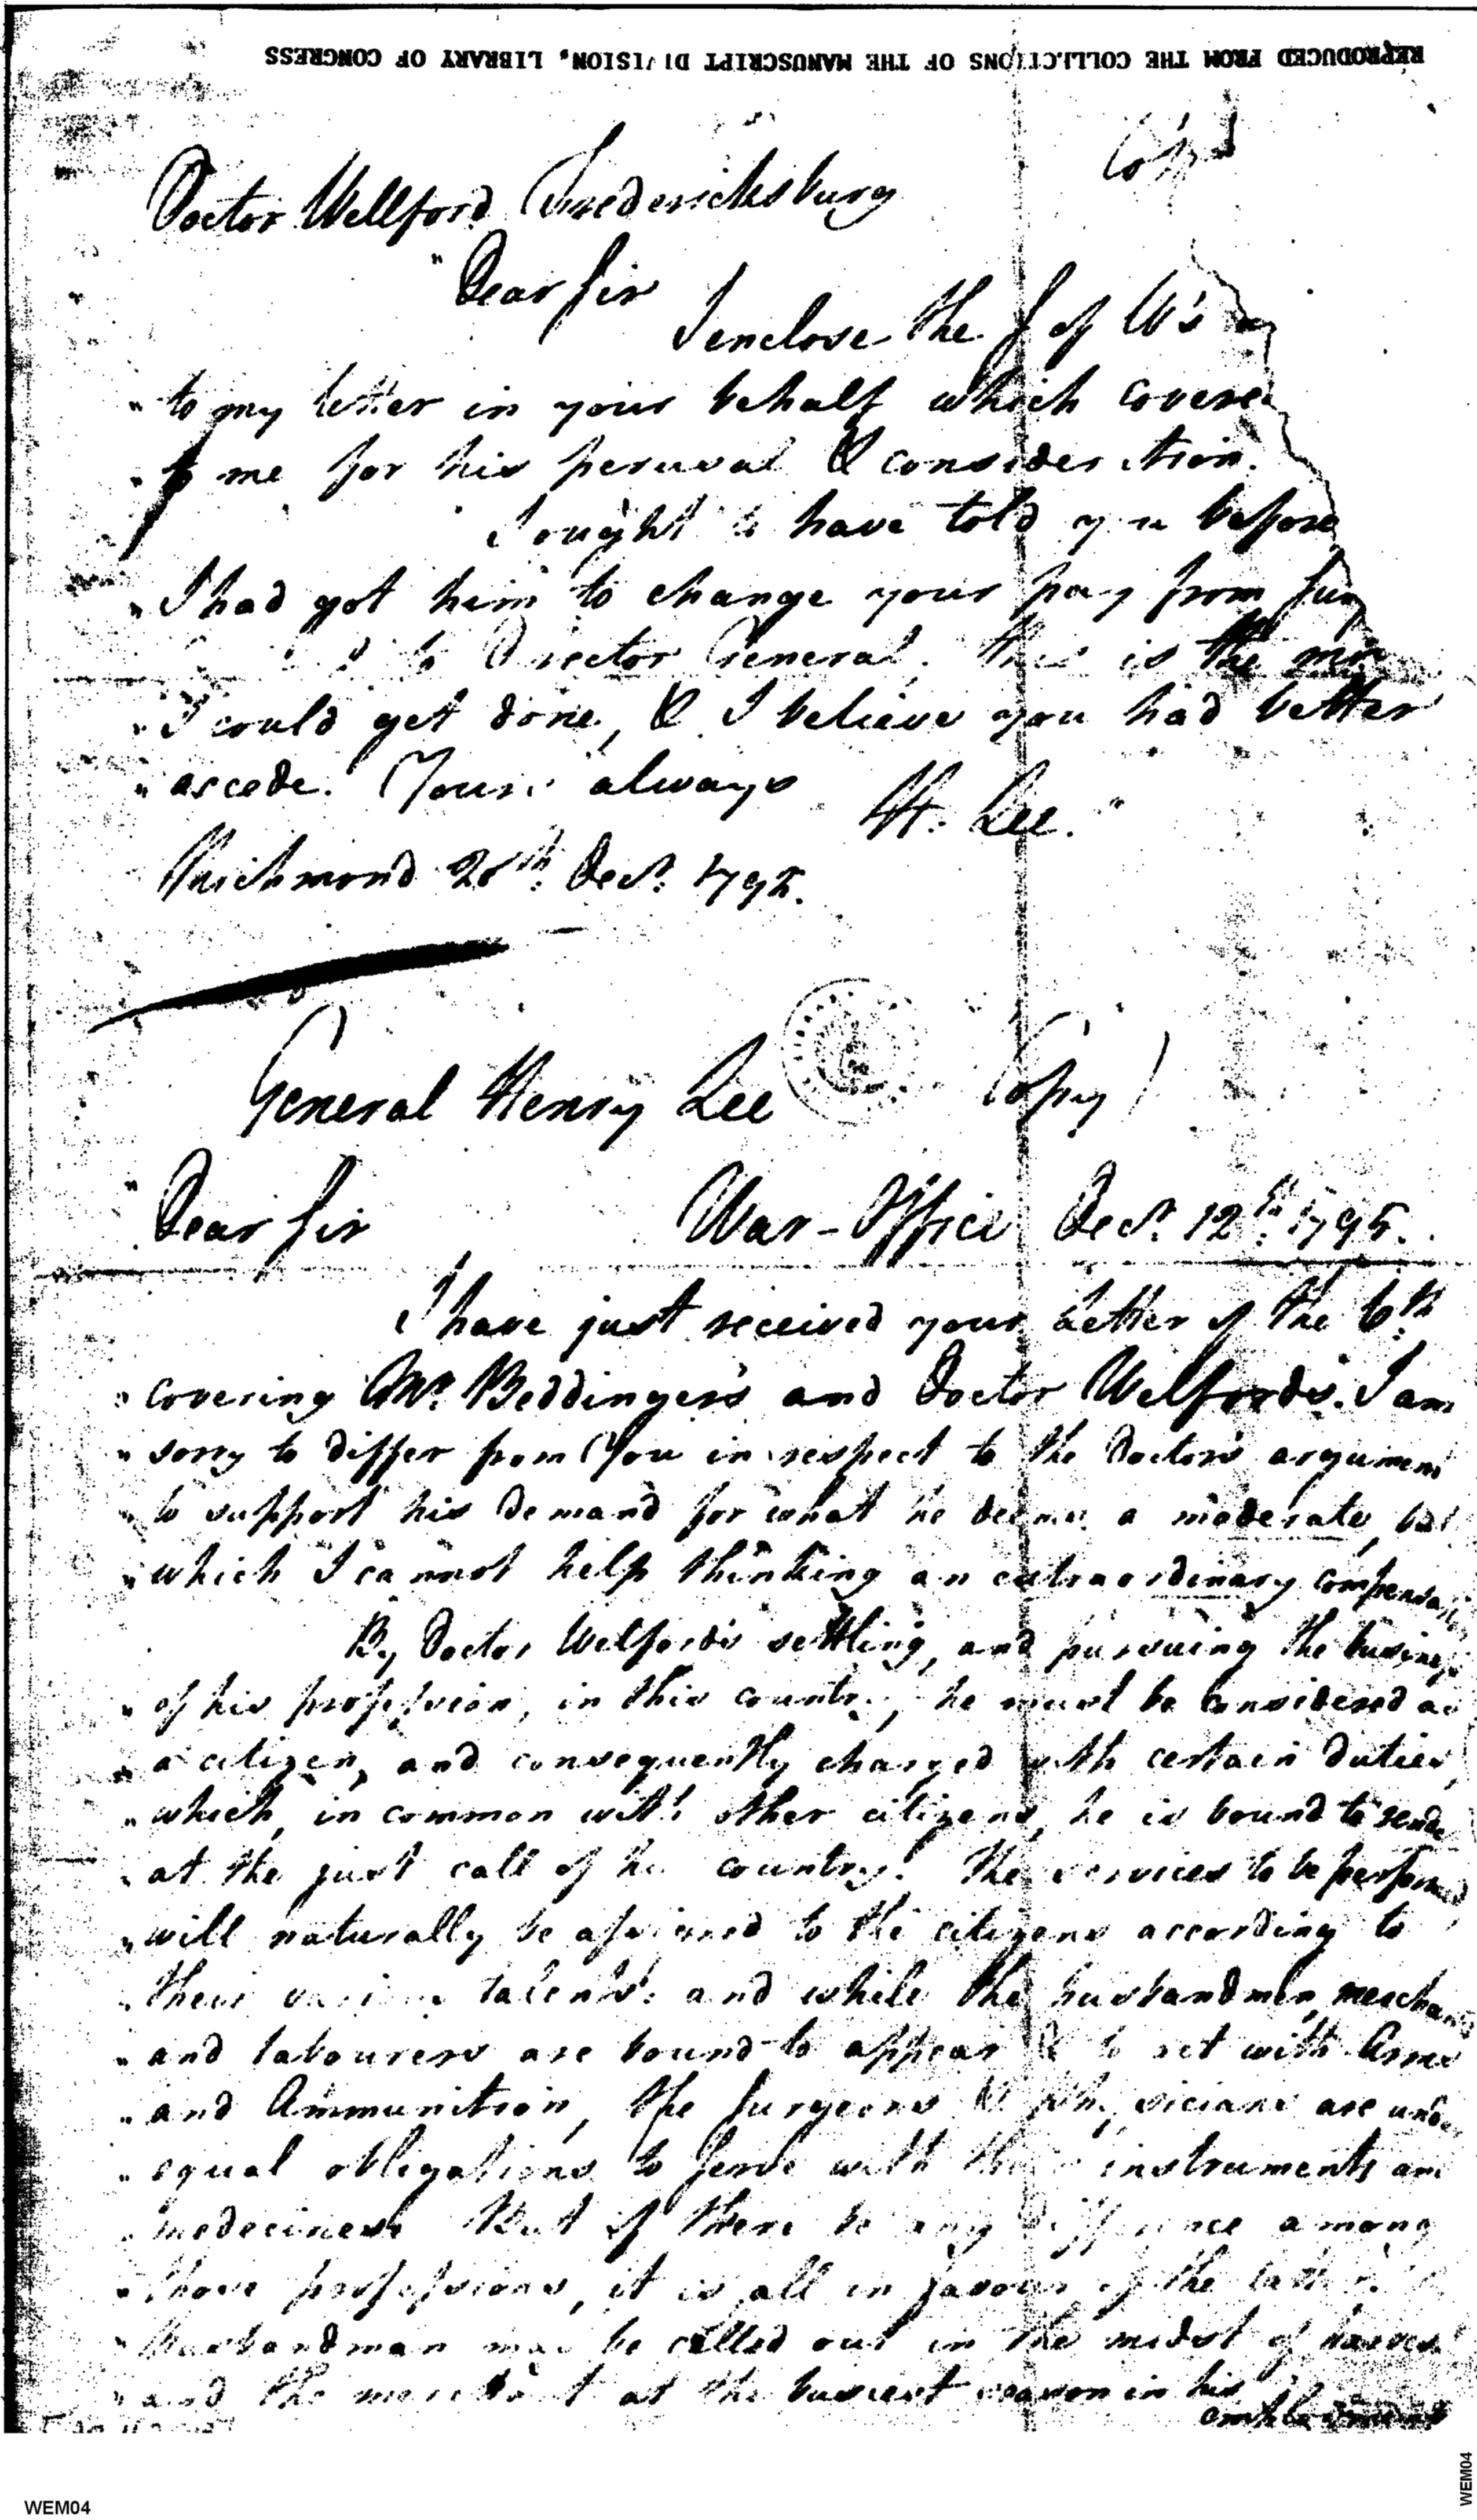 REPRODUCED FROM THE COLLECTIONS OF THE MANUSCRIPT DIVISION, LIBRARY OF CONGRESS
Doctor Wellford Fredericksburg
" Dear Sir
I enclose the S of W's
" to my letter in your behalf which covered
" to me for his perusal & consideration.
I ought to have told you before
" I had got him to change your pay from Sur
to Director General. this is the mo
" I could get done, & I believe you had better
" accede. Yours always
H. Lee. "
Richmond 20th. Decr. 1795.
General Henry Lee
Copy
" Dear Sir War-Office Decr. 12th. 1795.
I have just received your Letter of the 6th.
" covering Mr. Beddinger's and Doctor Welford's. I am
" sorry to differ from You in respect to the Doctors argument
" to support his demand for what he deems a moderate, but
" which I cannot help thinking an extraordinary compensati
By Doctor Welford's settling, and pursuing the business
" of his profession, in this country, he must be considered as
" a citizen, and consequently charged with certain duties,
" which, in common with other citizens, he is bound to rende
" at the just call of his country. The services to be performed
" will naturally be assigned to the citizens according to
" their various talents: and while the husbandmen, merchants
" and labourers are bound to appear & to act with Arms
" and Ammunition, the Surgeons & physicians are unde
" equal obligations to serve with their instruments and
" medecines. But if there be any difference among
" those professions, it is all in favour of the latter.
" Husbandman may be called out in the midst of harvest
" and the merchant at the busiest season in his
WEM04
WEM04